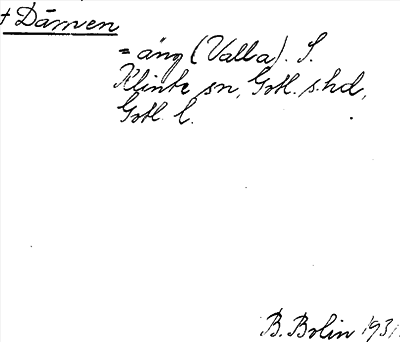 † Dämen
= äng (Valla). S.
Klinte sn, Gotl. s. hd,
Gotl. l.
B. Bolin 1931.